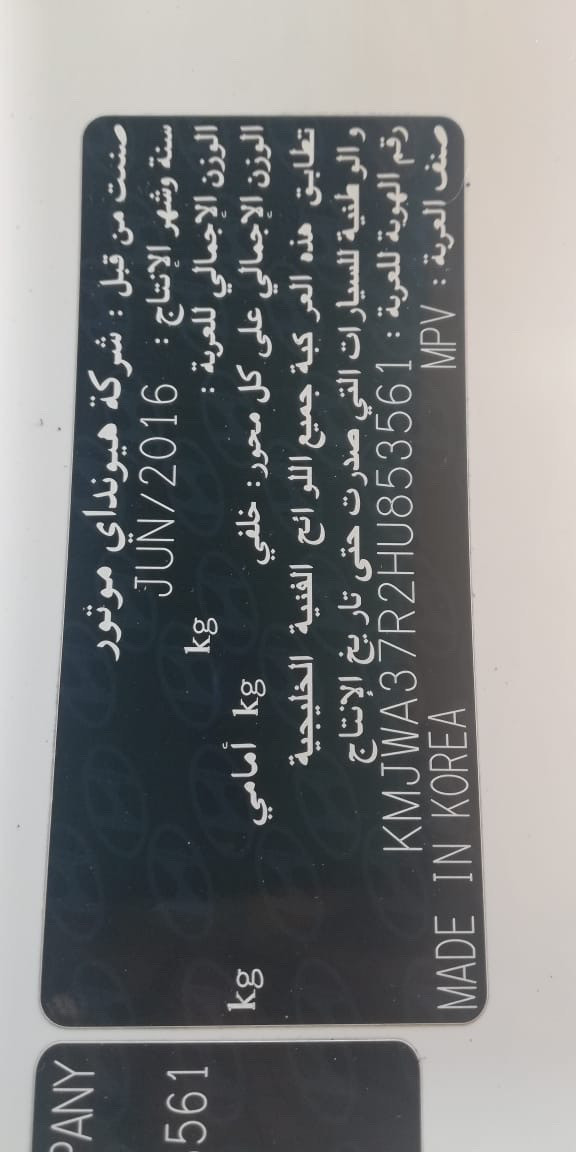 صنعت من قبل : شركة هيونداي موتور
سنة وشهر الإنتاج : JUN/2016
الوزن الإجمالي للعربة : kg
الوزن الإجمالي على كل محور: خلفي kg أمامي kg
تطابق هذه العر كبة جميع اللوائح الفنية الخليجية
و الوطنية للسيارات التي صدرت حتى تاريخ الإنتاج
رقم الهوية للعربة : KMJWA37R2HU853561
صنف العربة : MPV MADE IN KOREA
PANY
561